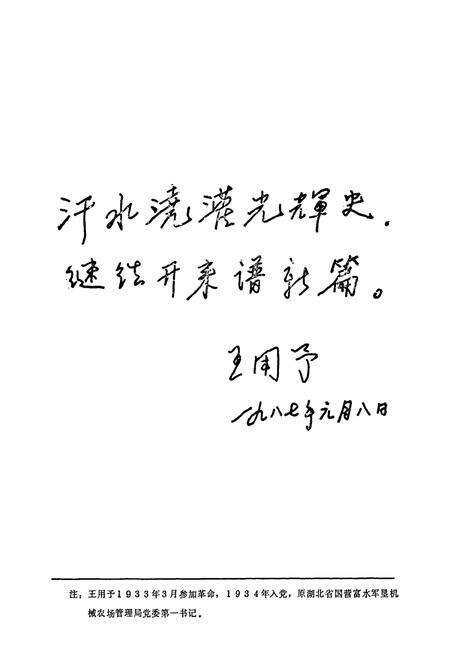 汗水浇灌光辉史.
继往开来谱新篇。
王用予
一九八七年元月八日
注:王用予1933年3月参加革命,1934年入党,原湖北省国营富水军垦机
械农场管理局党委第一书记。